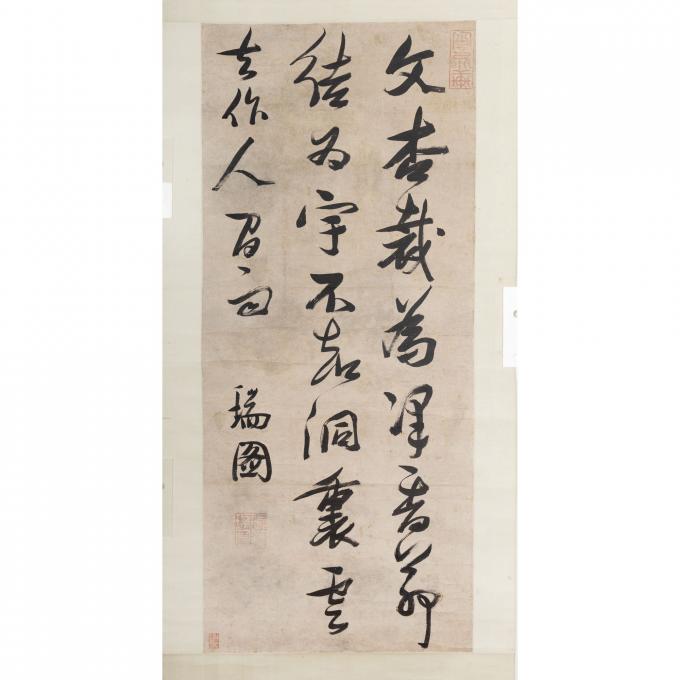 文杏裁為梁香茅
結為宇不知洞裏雲
去作人間雨
瑞圖